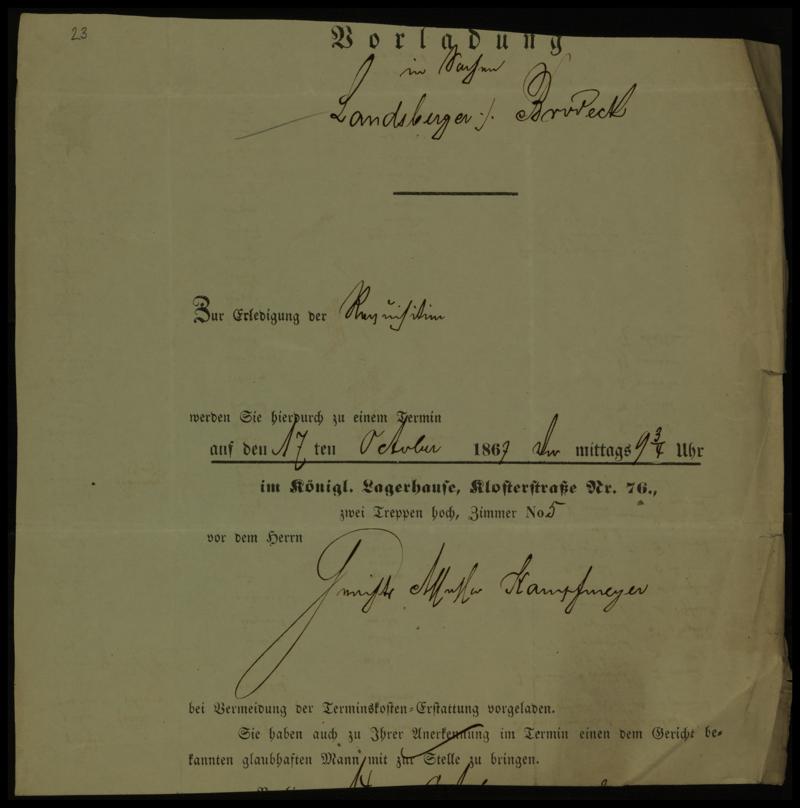 23
Vorladung
in Sachen
Landsberger ./. Brodeck
Zur Erledigung der Requisition
werden Sie hierdurch zu einem Termin
auf den 17 ten October 1867 Vor mittags 9 3/4 Uhr
im Königl. Lagerhause, Klosterstraße Nr. 76.,
zwei Treppen hoch, Zimmer No 5
vor dem Herrn
Gerichts Assessor Kampfmeyer
bei Vermeidung der Terminskosten-Erstattung vorgeladen.
Sie haben auch zu Ihrer Anerkennung im Termin einen dem Gericht be-
kannten glaubhaften Mann mit zur Stelle zu bringen.